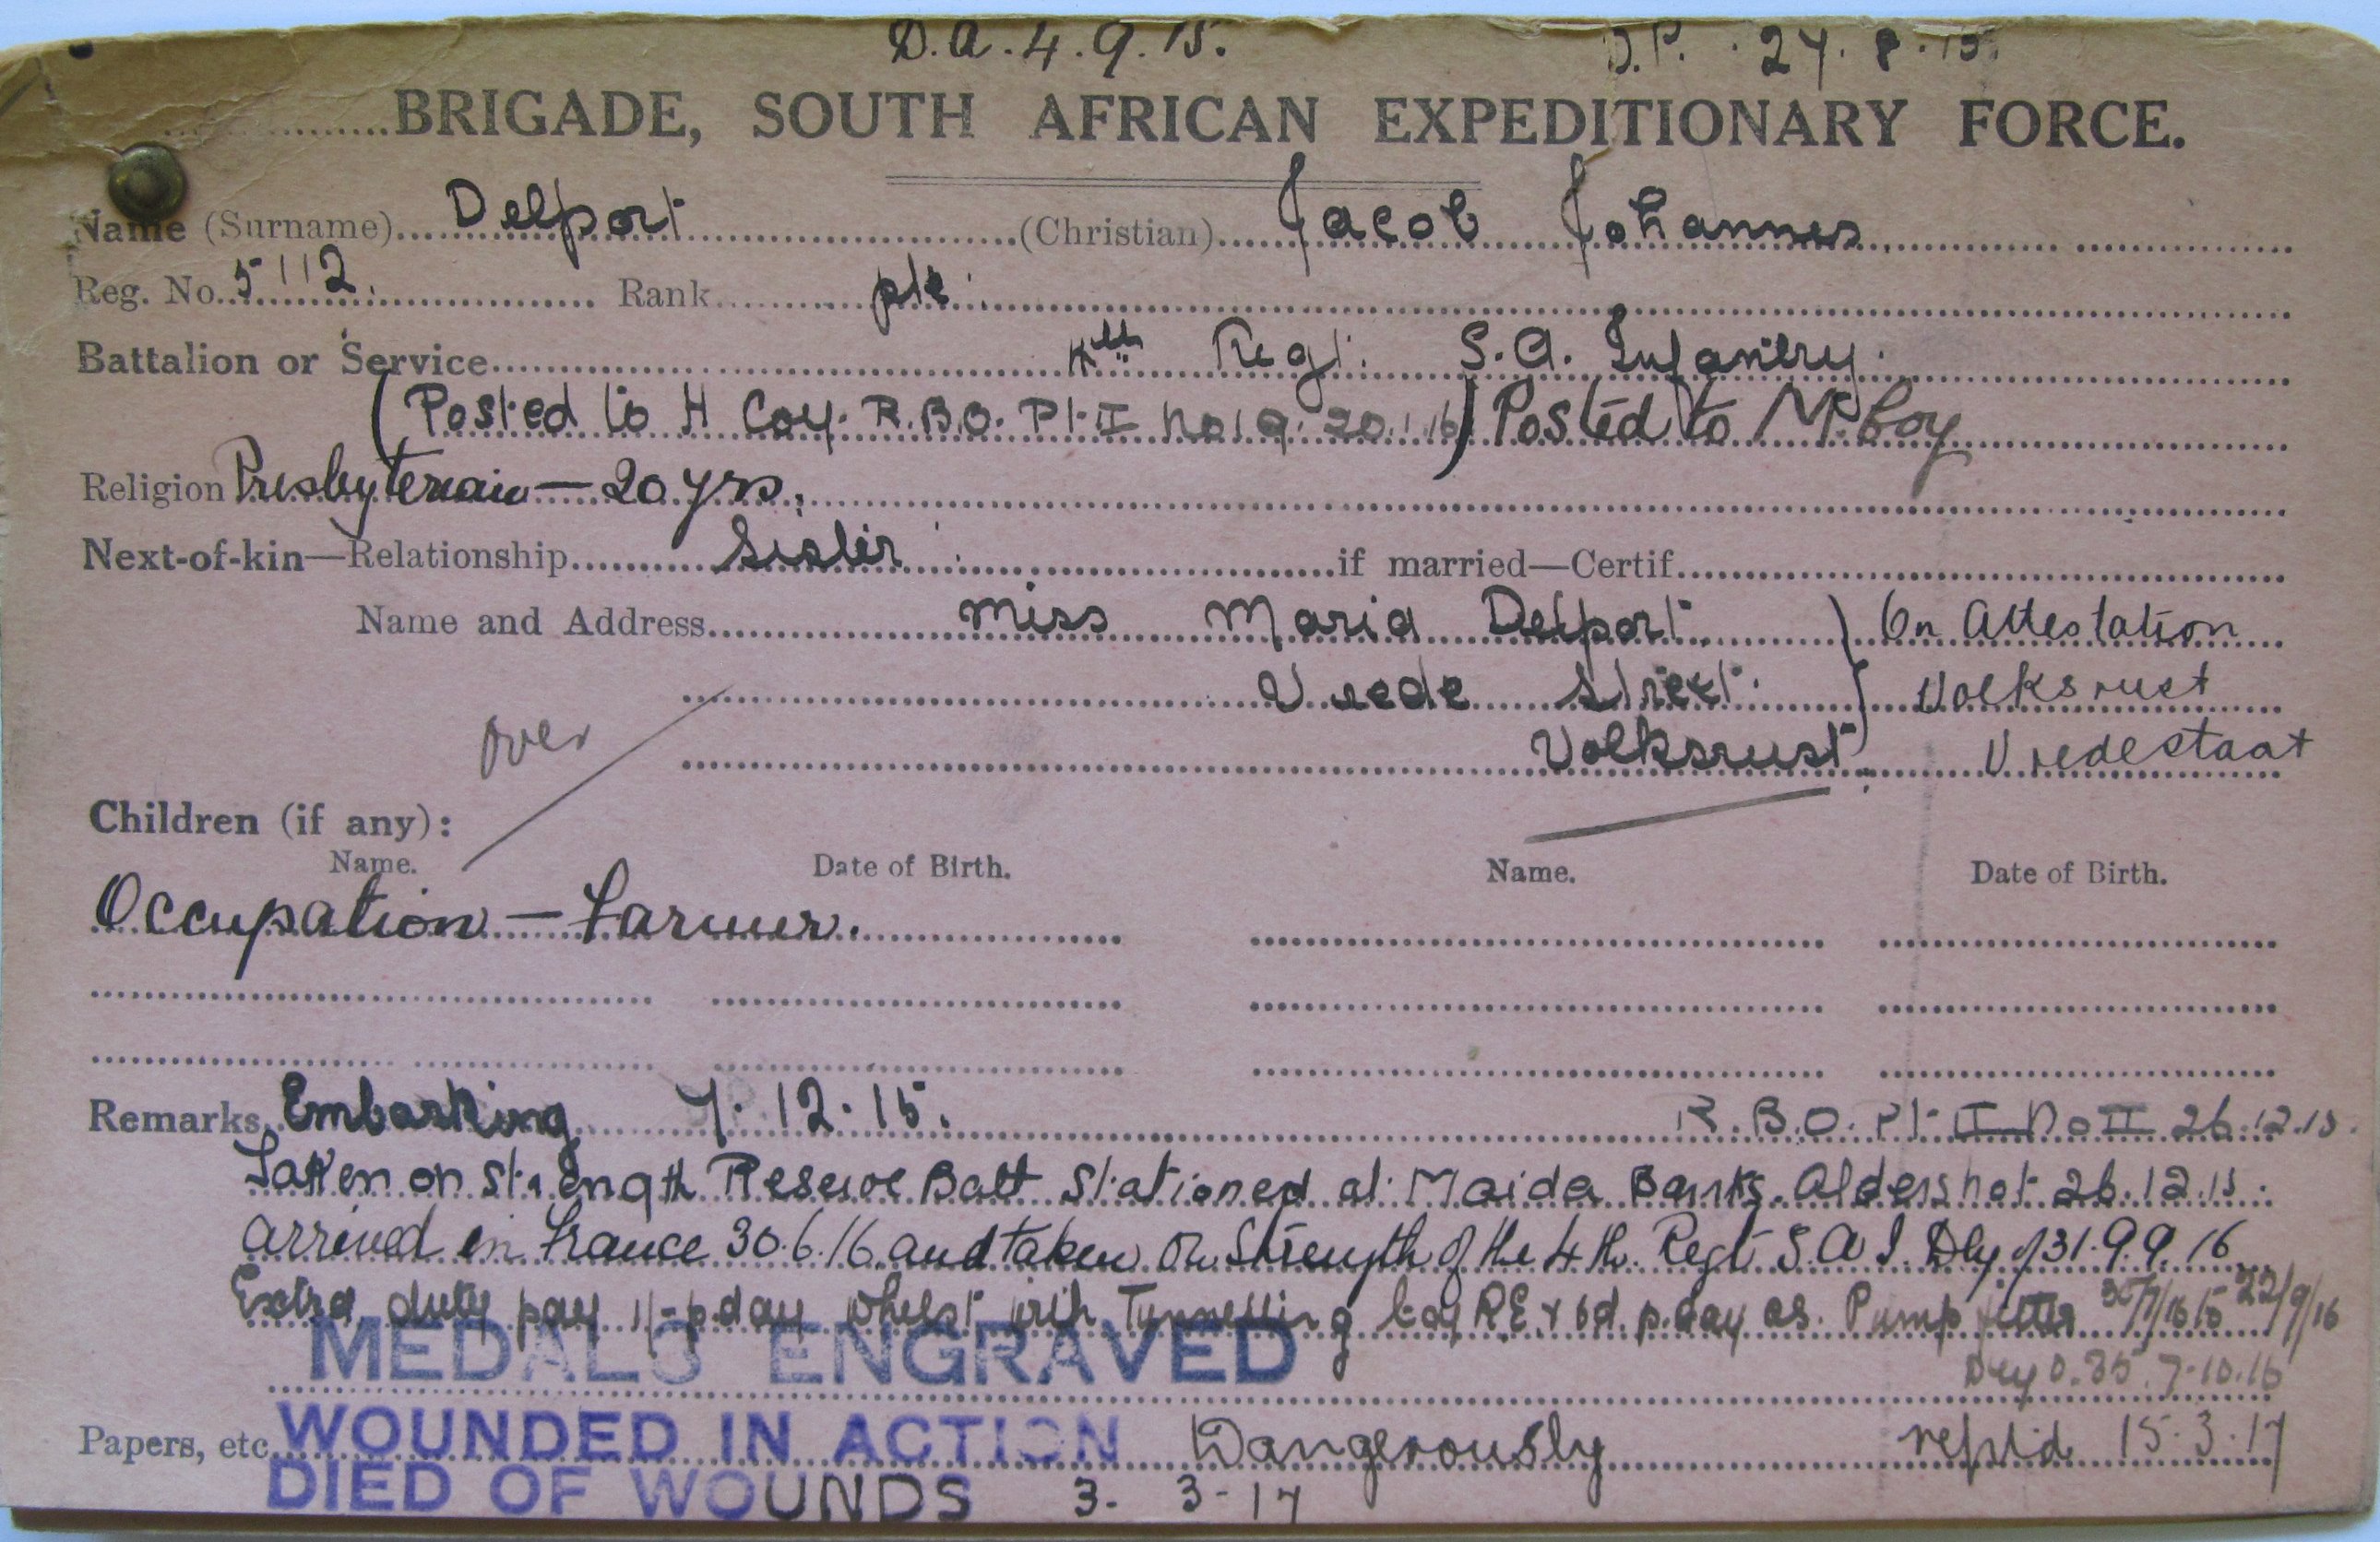 D.A. 4.9.15. D.P. 27.8.15.
BRIGADE, SOUTH AFRICAN EXPEDITIONARY FORCE.
Name (Surname) Delport (Christian) Jacob Johannes
Reg. No. 5112. Rank pte.
Battalion or Service 4th Regt. S.A. Infantry.
(Posted to H Coy. R.B.O. Pt. II No 19. 20.1.16) Posted to M. Coy
Religion Presbyterian — 20 yrs.
Next-of-kin—Relationship Sister if married—Certif.
Name and Address Miss Maria Delport. } On Attestation
Vrede Street. Volksrust
over Volksrust. Vredestaat
Children (if any):
Name. Date of Birth. Name. Date of Birth.
Occupation — Farmer.
Remarks Embarking 7.12.15. R.B.O. Pt. II No II 26.12.15.
Taken on strength Reserve Batt stationed at Maida Barrks. Aldershot 26.12.15.
arrived in France 30.6.16 and taken on Strength of the 4th. Regt S.A.I. Dly o/31. 9.9.16
Extra duty pay 1/- p. day whilst with Tunnelling Coy R.E. & 6d. p. day as Pump fitter 22/9/16
MEDALS ENGRAVED
Dly O. 35. 7.10.16
Papers, etc. WOUNDED IN ACTION Dangerously reptd. 15.3.17
DIED OF WOUNDS 3-3-17